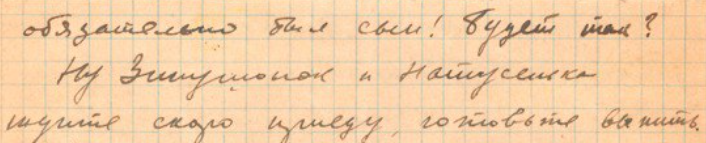 обязательно был сын! Будет так?
Ну Зинушонок и Натусенька
ждите скоро приеду, готовьте выпить.